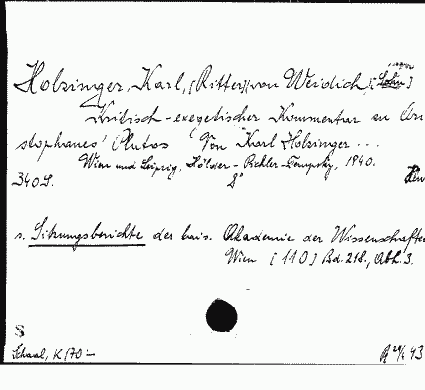 Holzinger, Karl, (Ritter) von Weidich, [Sohn]
Kritisch-exegetischer Kommentar zu Ari
stophanes' Plutos Von Karl Holzinger ...
Wien und Leipzig, Hölder-Pichler-Tempsky, 1940.
340 S. 8°
s. Sitzungsberichte der kais. Akademie der Wissenschaften
Wien [110] Bd. 218., Abh. 3.
S
Schaal, K 170-
43